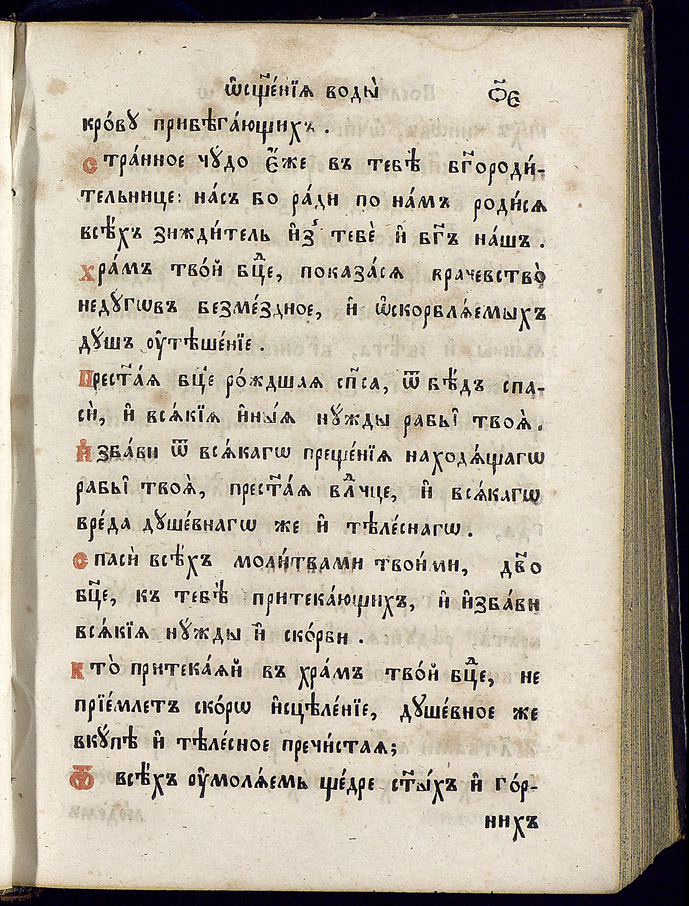 ѡ҆сщ҃е́нїѧ воды̀ ф҃ѯ
кро́вꙋ прибѣга́ющихъ .
стра́нное чꙋ́до є҆́же въ тебѣ̀ бг҃ороди́-
тельнице: на́съ бо ра́ди по на́мъ роди́сѧ
всѣ́хъ зижди́тель и҆з̾ тебє̀ и҆ бг҃ъ на́шъ .
хра́мъ тво́й бц҃е, показа́сѧ врачевство̀
недꙋ́гѡвъ безме́здное, и҆ ѡ҆скорблѧ́емыхъ
дꙋ́шъ ᲂу҆тѣше́нїе .
Прест҃а́ѧ бц҃е ро́ждшаѧ сп҃са, ѿ бѣ́дъ спа-
сѝ, и҆ всѧ́кїѧ и҆ны́ѧ нꙋ́жды рабы̑ твоѧ̀ .
И҆зба́ви ѿ всѧ́кагѡ преще́нїѧ находѧ́щагѡ
рабы̑ твоѧ̀, прест҃а́ѧ влⷣчце, и҆ всѧ́кагѡ
вре́да дꙋше́внагѡ же и҆ тѣле́снагѡ .
спасѝ всѣ́хъ моли́твами твои́ми, дв҃о
бц҃е, къ тебѣ̀ притека́ющихъ, и҆ и҆зба́ви
всѧ́кїѧ нꙋ́жды и҆ ско́рби .
кто̀ притека́ѧй въ хра́мъ тво́й бц҃е, не
прїе́млетъ ско́рѡ и҆сцѣле́нїе, дꙋше́вное же
вкꙋ́пѣ и҆ тѣле́сное пречи́стаѧ;
Ѿ всѣ́хъ ᲂу҆молѧ́емь ще́дре ст҃ы́хъ и҆ го́р-
нихъ